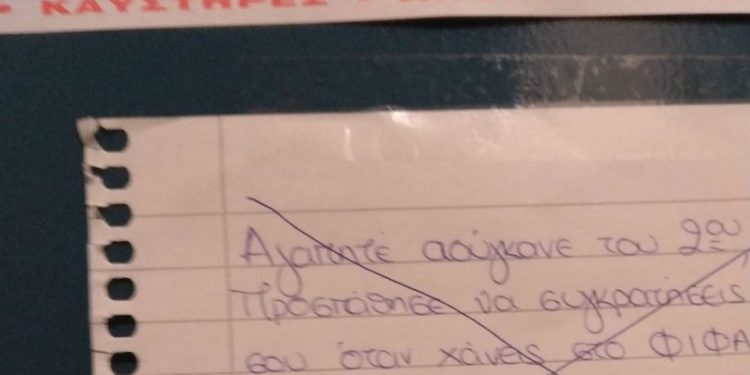 ΚΑΥΣΤΗΡΕΣ
Αγαπητέ αούγκανε του 2ου
Προσπάθησε να συγκρατήσεις
σου όταν χάνεις στο ΦΙΦΑ